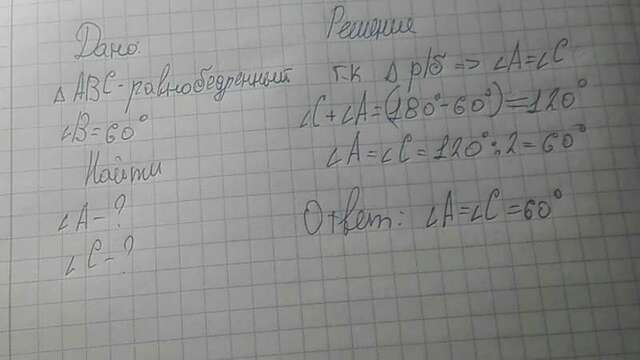 Дано:
△ ABC - равнобедренный
∠B = 60°
Найти
∠A - ?
∠C - ?
Решение
т.к △ р/б => ∠A = ∠C
∠C + ∠A = (180° - 60°) = 120°
∠A = ∠C = 120° : 2 = 60°
Ответ: ∠A = ∠C = 60°